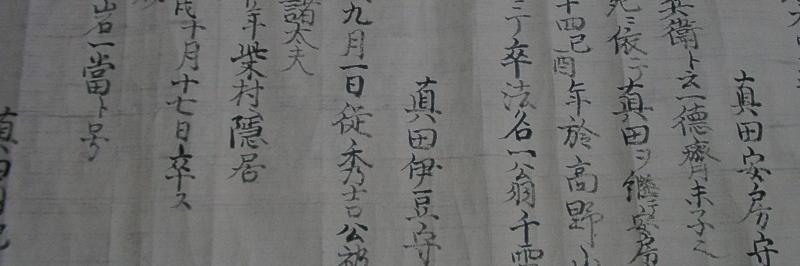 真田安房守
兵衛ト云一徳齋末子也
死ニ依テ真田ヲ継安房
十四己酉年於高野山
ニテ卒法名一翁千雪
真田伊豆守
九月一日従秀吉公被
諸太夫
年柴村隠居
十月十七日卒ス
岩石一當ト号
真田